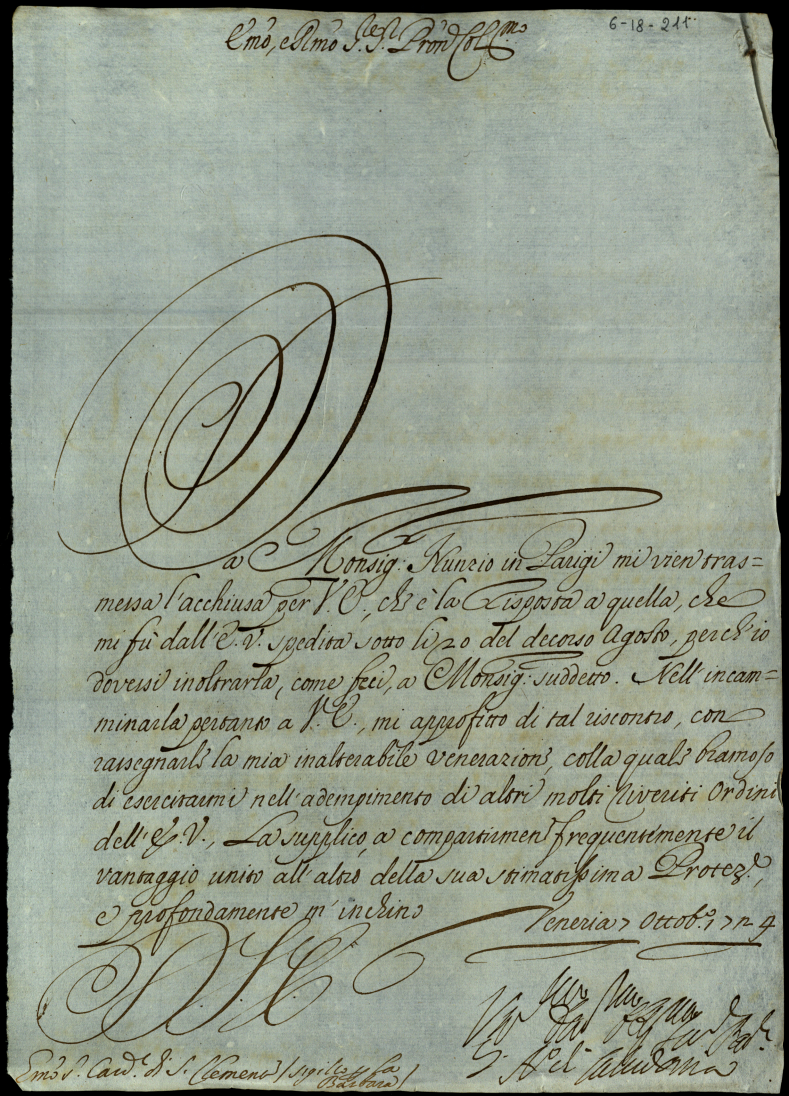 6-18-211
Emo, e Rmo Sre Sre Pron Colmo
Da Monsig: Nunzio in Parigi mi vien tras=
messa l'acchiusa per V. E., ch'è la Risposta a quella, che
mi fù dall'E. V. spedita sotto li 20 del decorso Agosto, perch'io
dovessi inoltrarla, come feci, a Monsig: suddetto. Nell'incam=
minarla pertanto a V. E., mi approfitto di tal riscontro, con
rassegnarle la mia inalterabile venerazione, colla quale bramoso
di esercitarmi nell'adempimento di altri molti riveriti Ordini
dell'E. V., La supplico a compartirmene frequentemente il
vantaggio unito all'altro della sua stimatissima Protez.e,
e profondamente m'inchino
Venezia 7 Ottob.e
D. V. E.
Emo Sr. Card.l di S. Clemente (sigillo Sta Barbara)